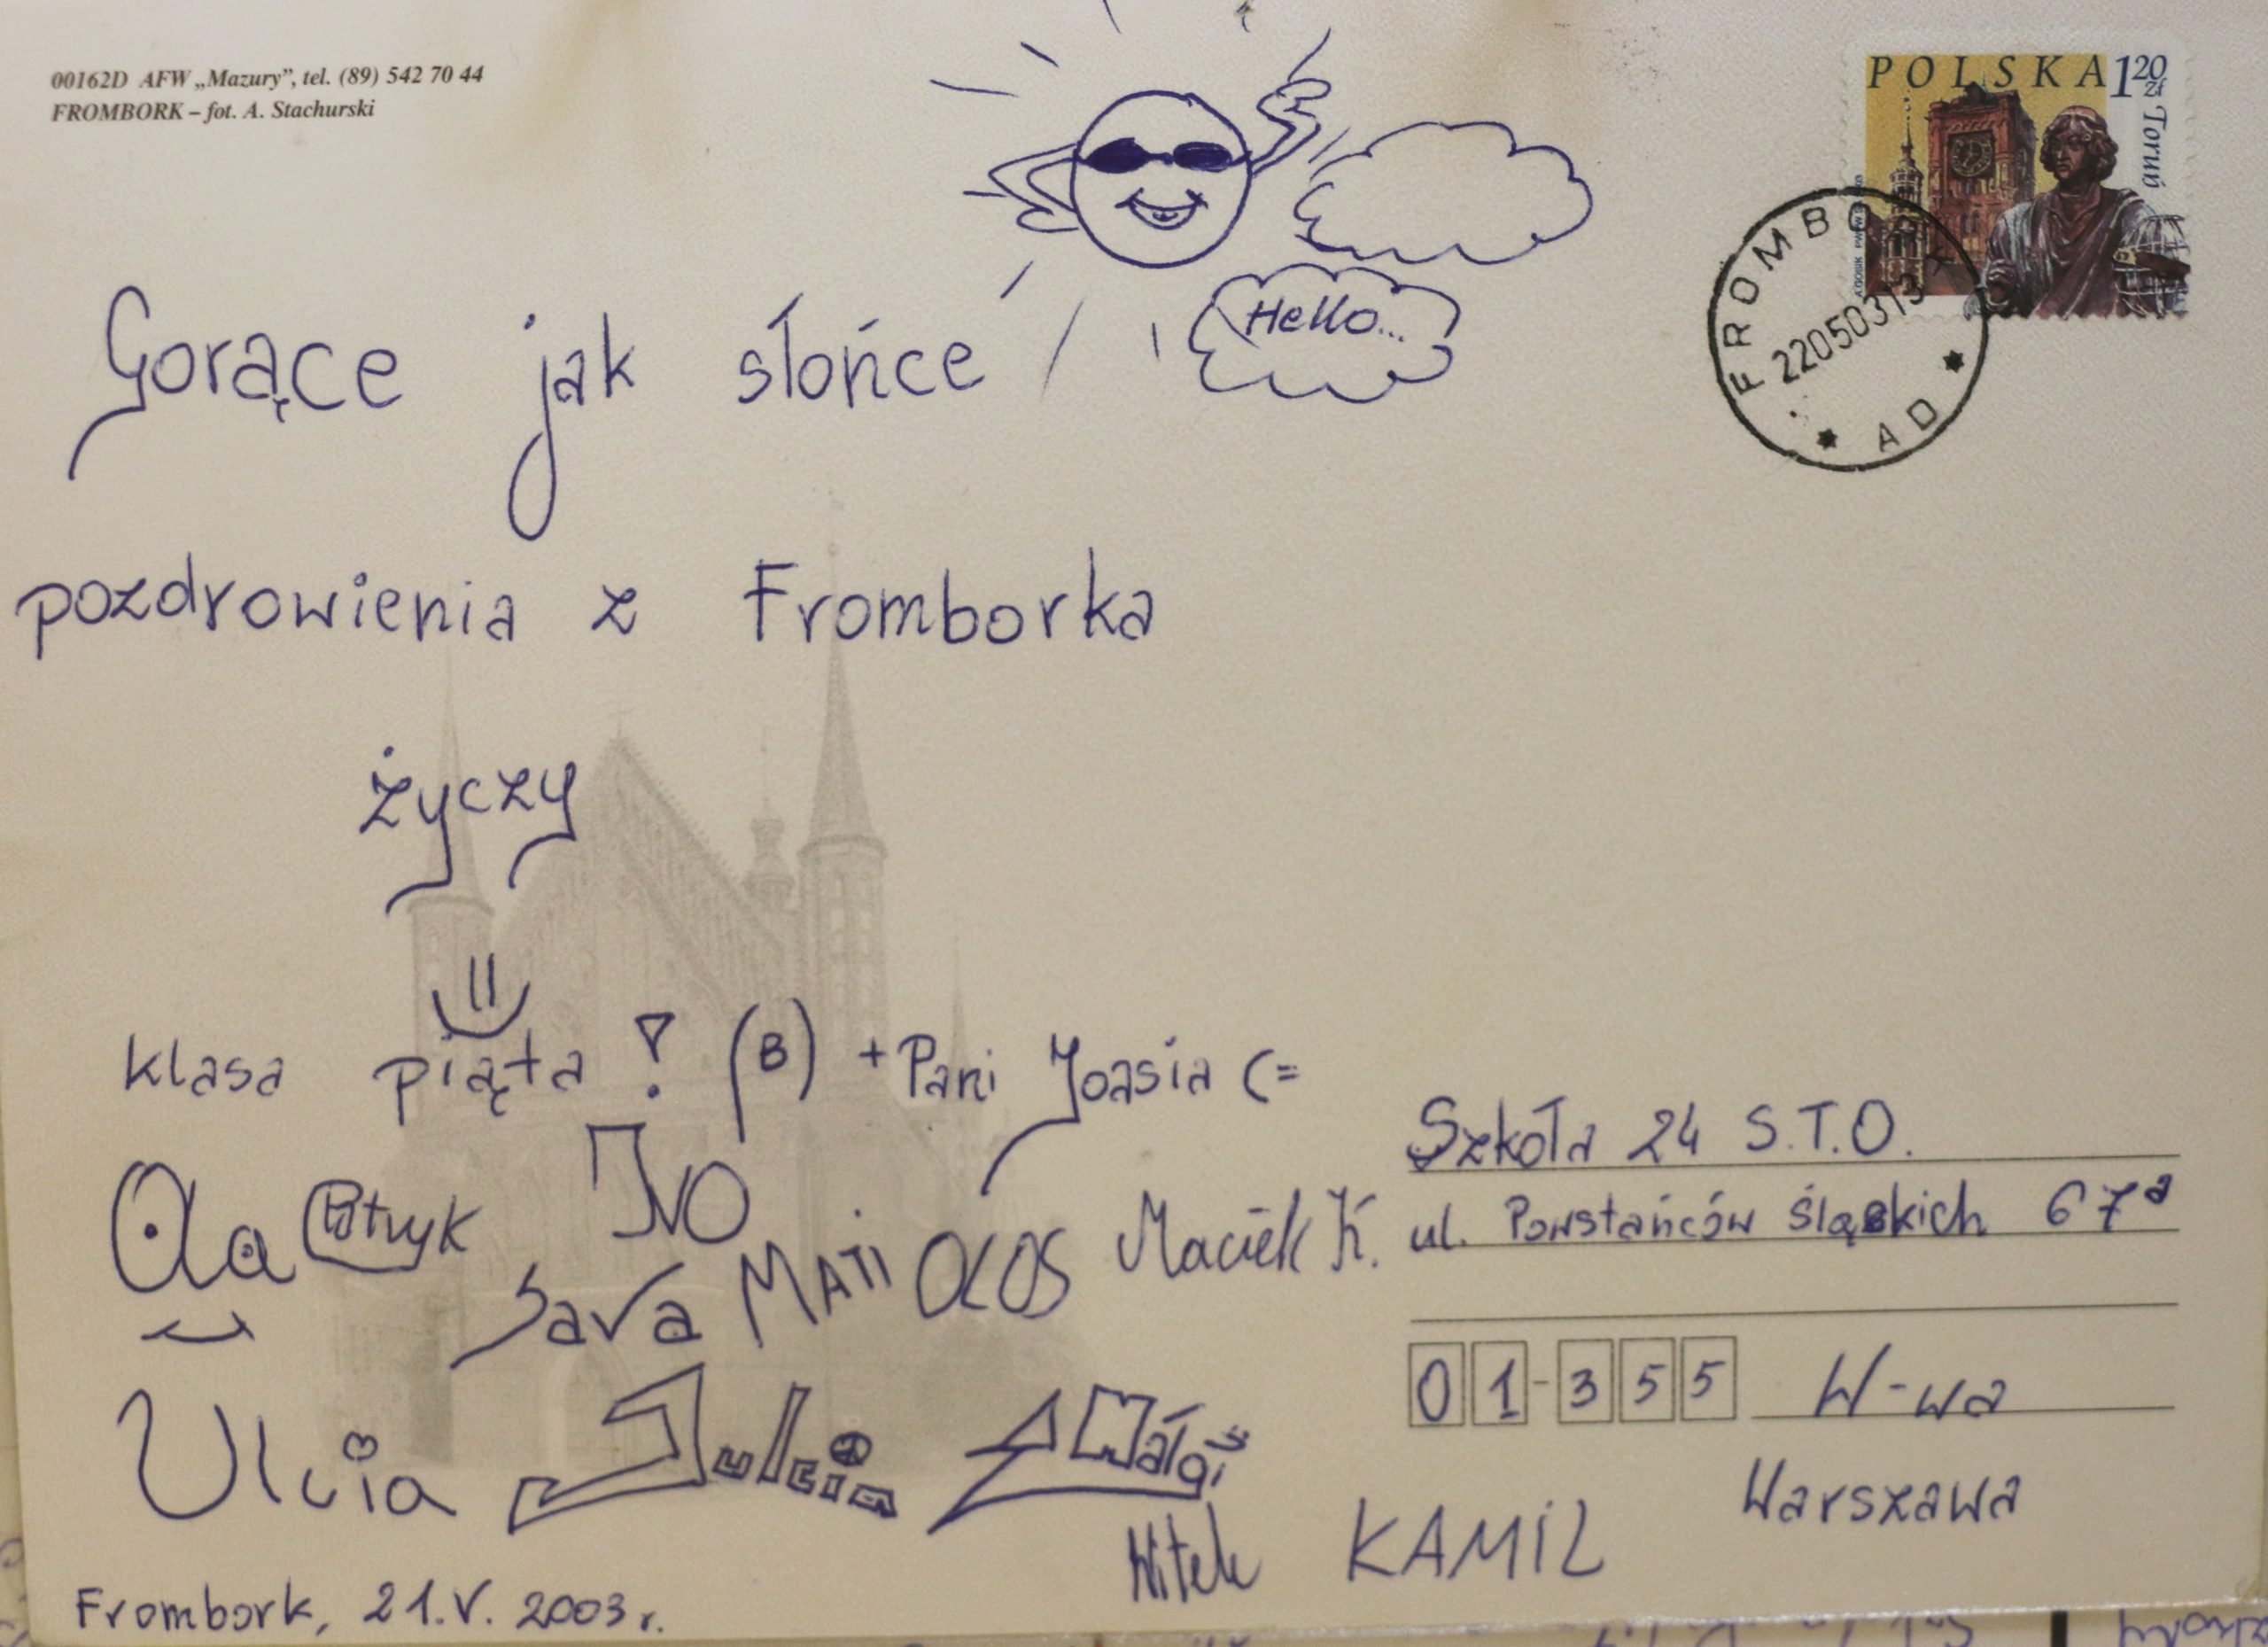 00162D AFW „Mazury”, tel. (89) 542 70 44
FROMBORK – fot. A. Stachurski
POLSKA 120 zł
Toruń
FROMBORK
22050313
AD
Hello...
Gorące jak słonce
pozdrowienia z Fromborka
życzy
klasa piąta ! (B) + Pani Joasia (=
Ola Patryk IVO
Sara MATI OLOS Maciek K.
Ulcia Julcia Małgi
Witek KAMIL
Frombork, 21.V.2003r.
Szkoła 24 S.T.O.
ul. Powstańców śląskich 67a
01-355 W-wa
Warszawa